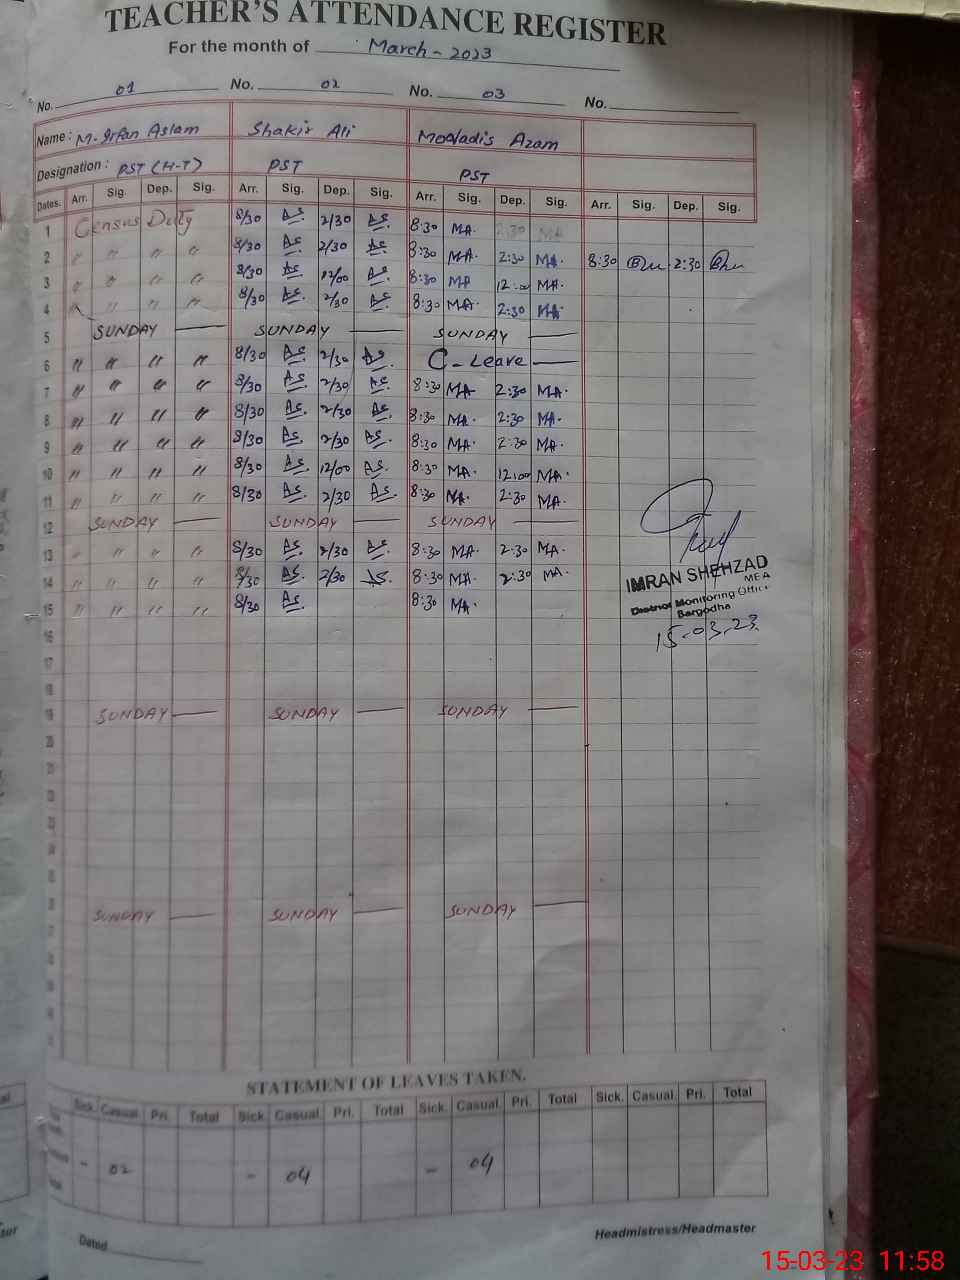 TEACHER'S ATTENDANCE REGISTER
For the month of March - 2023
No. 01 No. 02 No. 03 No.
Name: M. Irfan Aslam Shakir Ali Azam
Designation: PST (H-T) PST PST
Dates. Arr. Sig. Dep. Sig. Arr. Sig. Dep. Sig. Arr. Sig. Dep. Sig. Arr. Sig. Dep. Sig.
1 Census Duty 8/30 As. 2/30 As. 8:30 MA. 2:30 MA
2 " " " " 8/30 As. 2/30 As. 8:30 MA. 2:30 MA. 8:30 2:30
3 " " " " 8/30 As. 12/00 As. 8:30 MA 12:00 MA.
4 " " " " 8/30 As. 2/30 As. 8:30 MA. 2:30 MA.
5 SUNDAY — SUNDAY — SUNDAY —
6 " " " " 8/30 As. 2/30 As. C - Leave —
7 " " " " 8/30 As. 2/30 As. 8:30 MA. 2:30 MA.
8 " " " " 8/30 As. 2/30 As. 8:30 MA. 2:30 MA.
9 " " " " 8/30 As. 2/30 As. 8:30 MA. 2:30 MA.
10 " " " " 8/30 As. 12/00 As. 8:30 MA. 12:00 MA.
11 " " " " 8/30 As. 2/30 As. 8:30 MA. 2:30 MA.
12 SUNDAY — SUNDAY — SUNDAY —
13 " " " " 8/30 As. 2/30 As. 8:30 MA. 2:30 MA.
14 " " " " 8/30 As. 2/30 As. 8:30 MA. 2:30 MA.
15 " " " " 8/30 As. 8:30 MA.
IMRAN SHEHZAD
MEA
District Monitoring Office
Sargodha
15-03-23
16
17
18
19 SUNDAY — SUNDAY — SUNDAY —
20
21
22
23
24
SUNDAY — SUNDAY — SUNDAY —
STATEMENT OF LEAVES TAKEN.
Sick. Casual. Pri. Total Sick. Casual. Pri. Total Sick. Casual. Pri. Total Sick. Casual. Pri. Total
- 02 - 04 - 04
Dated
Headmistress/Headmaster
15-03-23 11:58